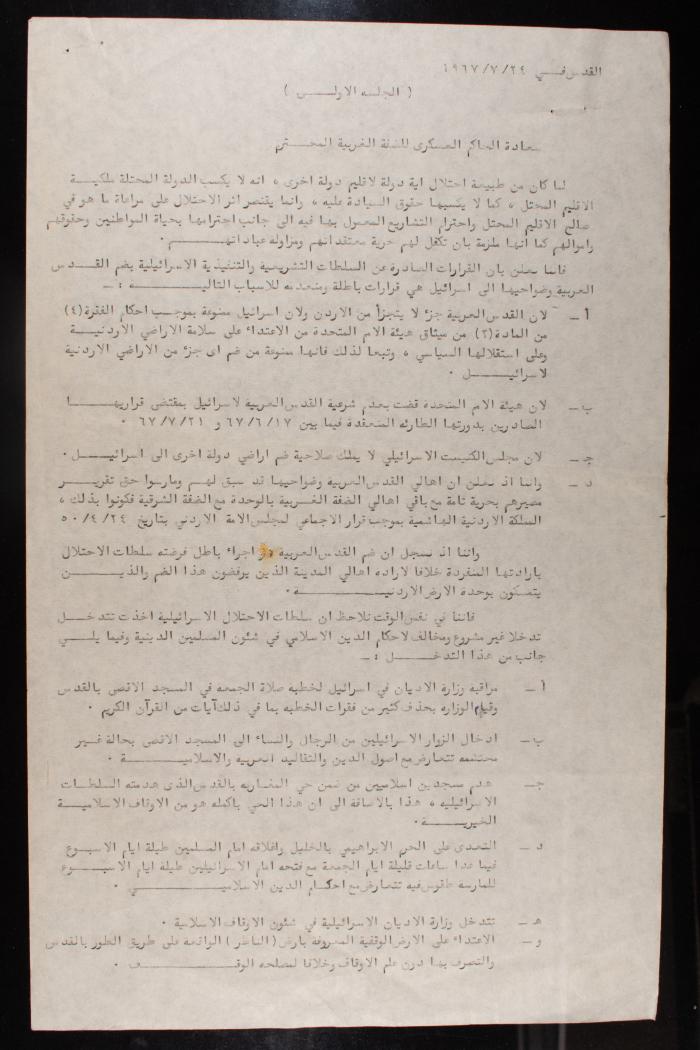 القدس في ٢٤/٧/١٩٦٧
( الجلسه الاولى )
سعادة الحاكم العسكرى للضفة الغربية المحترم
لما كان من طبيعة احتلال اية دولة لاقليم دولة اخرى ، انه لا يكسب الدولة المحتلة ملكية
الاقليم المحتل ، كما لا يكسبها حقوق السيادة عليه ، وانما يقتصر اثر الاحتلال على مراعاة ما هو في
صالح الاقليم المحتل واحترام التشاريع المعمول بها فيه الى جانب احترامها بحياة المواطنين وحقوقهم
واموالهم كما انها ملزمة بان تكفل لهم حرية معتقداتهم ومزاوله عباداتهم .
فاننا نعلن بان القرارات الصادرة عن السلطات التشريعية والتنفيذية الاسرائيلية بضم القدس
العربية وضواحيها الى اسرائيل هي قرارات باطلة ومنعدمه للاسباب التاليه : ـ
أ ـ لان القدس العربية جزء لا يتجزأ من الاردن ولان اسرائيل ممنوعة بموجب احكام الفقرة (٤)
من المادة (٢) من ميثاق هيئة الامم المتحدة من الاعتداء على سلامة الاراضي الأردنية
وعلى استقلالها السياسي ، وتبعا لذلك فانها ممنوعة من ضم اى جزء من الاراضي الاردنية
لاسرائيل .
ب ـ لان هيئة الامم المتحدة قضت بعدم شرعية القدس العربية لاسرائيل بمقتضى قراريها
الصادرين بدورتها الطارئه المنعقدة فيما بين ٦٧/٦/١٧ و ٦٧/٧/٢١ .
جـ ـ لان مجلس الكنيست الاسرائيلي لا يملك صلاحية ضم اراضي دولة اخرى الى اسرائيل .
د ـ واننا اذ نعلن ان اهالي القدس العربية وضواحيها قد سبق لهم ومارسوا حق تقرير
مصيرهم بحرية تامة مع باقي اهالي الضفة الغربية بالوحدة مع الضفة الشرقية فكونوا بذلك ،
المملكة الاردنية الهاشمية بموجب قرار الاجماعي لمجلس الامة الاردني بتاريخ ٥٠/٤/٢٤
واننا اذ نسجل ان ضم القدس العربية هو اجراء باطل فرضته سلطات الاحتلال
بارادتها المنفردة خلافا لاراده اهالي المدينة الذين يرفضون هذا الضم والذين
يتمسكون بوحدة الارض الاردنية .
فاننا في نفس الوقت نلاحظ ان سلطات الاحتلال الاسرائيلية اخذت تتدخل
تدخلا غير مشروع ومخالف لاحكام الدين الاسلامي في شئون المسلمين الدينية وفيما يلي
جانب من هذا التدخل : ـ
أ ـ مراقبه وزارة الاديان في اسرائيل لخطبه صلاة الجمعه في المسجد الاقصى بالقدس
وقيام الوزاره بحذف كثير من فقرات الخطبه بما في ذلك آيات من القرآن الكريم .
ب ـ ادخال الزوار الاسرائيلين من الرجال والنساء الى المسجد الاقصى بحالة غير
محتشمه تتعارض مع اصول الدين والتقاليد العربيه والاسلامية .
جـ ـ هدم مسجدين اسلاميين من ضمن حي المغاربه بالقدس الذى هدمته السلطات
الاسرائيليه ، هذا بالاضافة الى ان هذا الحي باكمله هو من الاوقاف الاسلامية
الخيرية .
د ـ التعدى على الحرم الابراهيمي بالخليل واغلاقه امام المسلمين طيلة ايام الاسبوع
فيما عدا ساعات قليلة ايام الجمعة مع فتحه امام الاسرائيلين طيلة ايام الاسبوع
للمارسه طقوس فيه تتعارض مع احكام الدين الاسلامي .
هـ ـ تتدخل وزارة الاديان الاسرائيلية في شئون الاوقاف الاسلامية .
و ـ الاعتداء على الارض الوقفية المعروفة بارض ( الناظر ) الواقعة على طريق الطور بالقدس
والتصرف بها دون علم الاوقاف وخلافا لمصلحه الوقف .